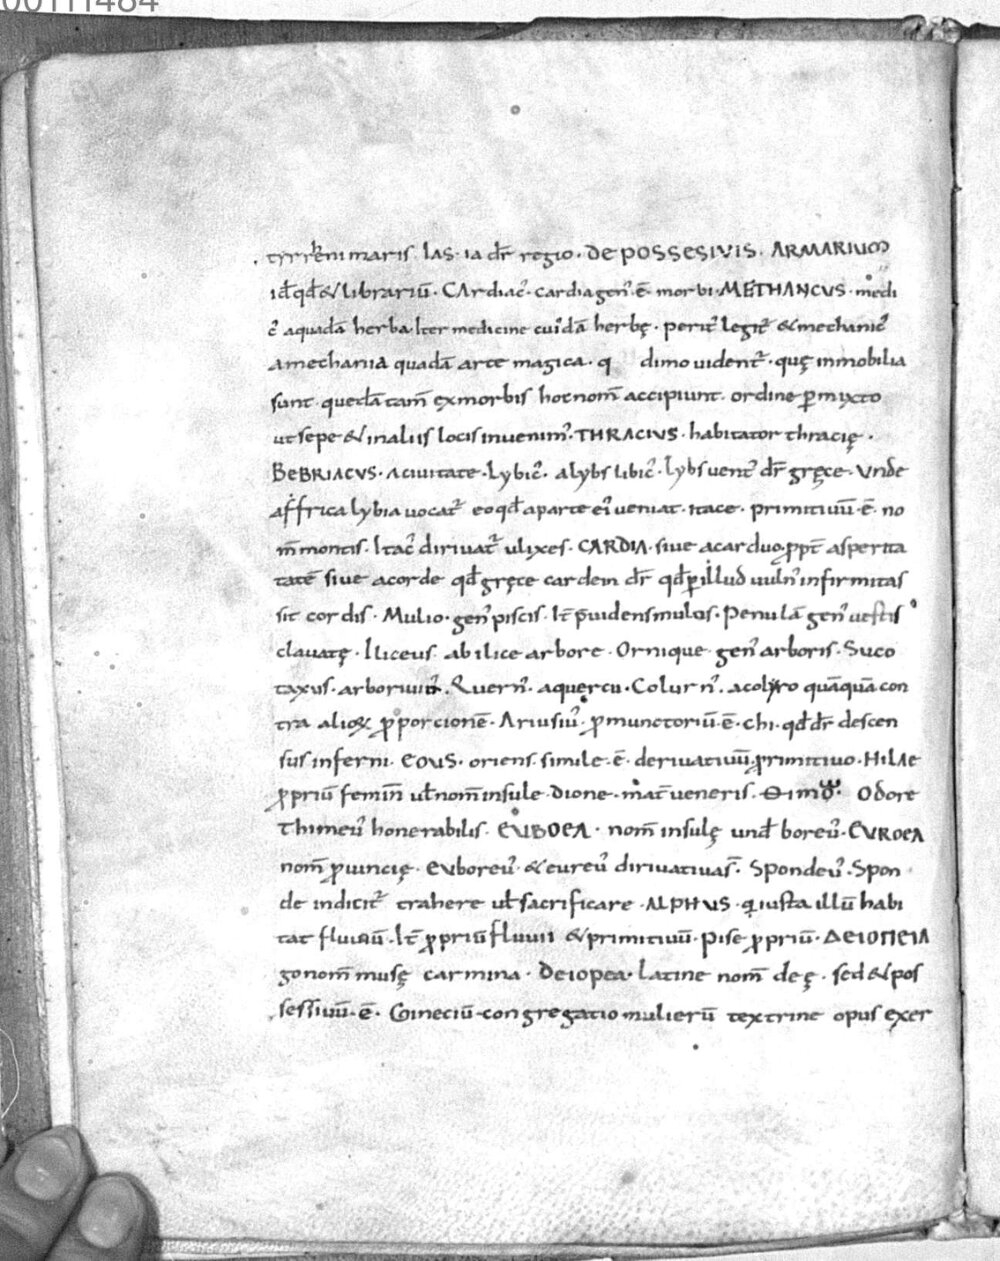 00111484
tyrrheni maris. las. ia dr̄ regio. De POSSESIVIS. ARMARIUM
id̄ qd̄ & librariū. CArdiac᾽. cardia gen᾽. ē morbi. METHANCVS. medi
c᾽ aquadā herba. Iter medicine cui᾽dā herbę. perit᾽ legit᾽ & mechanic᾽
amechania quadā arte magica. q dimo uident᾽. quę inmobilia
sunt. quedā tam̄ exmorbis hoc nom̄ accipiunt. ordine p̄mixto
ut sepe & inaliis locis inuenim᾽. THRACIUS. habitator thracię.
BeBRIACVS. Aciuitate. Lybic᾽. alybs libic᾽. Lybs uent᾽ dr̄ gręce. Vnde
affrica lybia uocat᾽ eo qd̄ aparte ei᾽ ueniat. itace. primitiuū. ē. no
m̄ montis. Itac᾽ diriuat᾽ ulixes. CARDIA. siue acarduo ꝓpt̄ asperita
tatē siue acorde qd̄ gręce cardein dr̄ qd̄ ꝑ illud uuln᾽ infirmitas
sit cordis. Mulio. gen᾽ piscis. Ił p̄uidens mulos. Penulā gen᾽ uestis
clauatę. Iliceus. ab ilice arbore. Ornique gen᾽ arboris. Suco
taxus. arboriuir. Quern᾽. aquercu. Colurn᾽. acolyro quāquā con
tra alioꝝ ꝓporcionē. Ariusiū᾽. ꝓmunctoriū. ē. chi. qd̄ dr̄ descen
sus inferni. EOVS. oriens. simile. ē. deriuatiuū. primitiuo. HILAE
ꝓpriū femin̄ ul̄ nom̄ insule. Dione. mat̄ ueneris. Odore
Thimeū᾽ honerabilis. EVBOEA. nom̄ insulę und̄ boreū᾽. EVROEA
nom̄ ꝓuincię. Euboreū᾽. & eureū᾽ diriuatiuas̄. Spondeū᾽. Spon
de indicit᾽ trahere ul̄ sacrificare. ALPHUS. q iusta illū habi
tat fluiuū. Ił ꝓpriū fluuii & primitiuū. Pise ꝓpriū. ΔEIOΠEIA
gonom̄ musę carmina. Deiopea. Latine nom̄ deę. sed & pos
sessiuū. ē. Gineciū. congregatio mulierū textrine opus exer